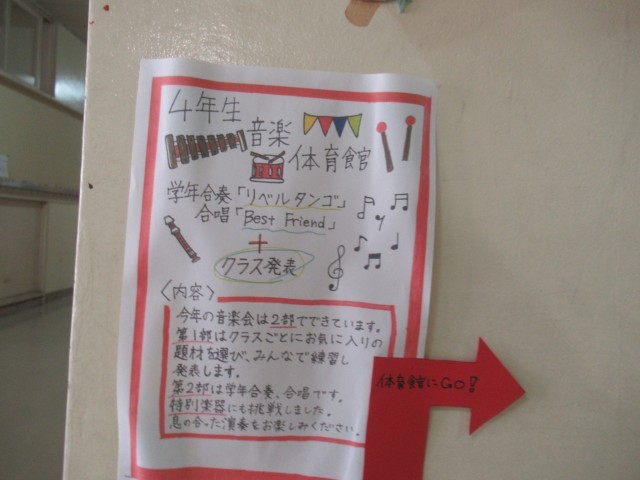 4年生
音楽
体育館
学年合奏「リベルタンゴ」
合唱「Best Friend」
+
クラス発表
〈内容〉
今年の音楽会は2部でできています。
第1部はクラスごとにお気に入りの
題材を選び、みんなで練習し
発表します。
第2部は学年合奏、合唱です。
特別楽器にも挑戦しました。
息の合った演奏をお楽しみください。
体育館にGO!!